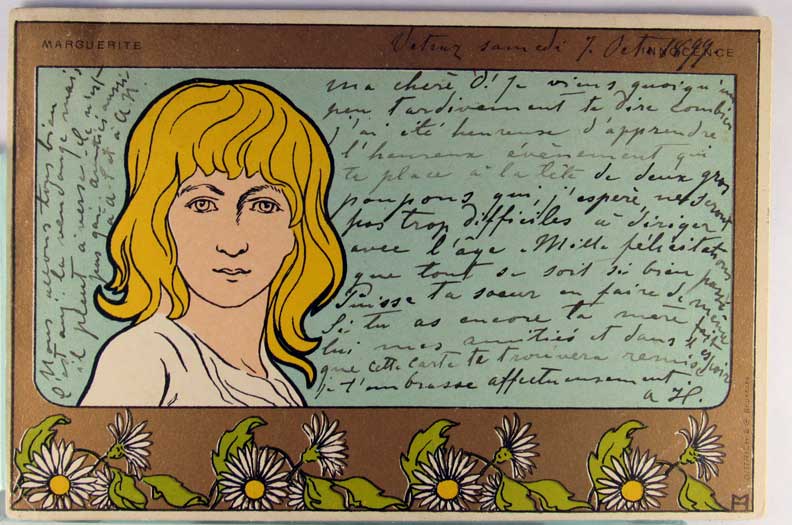 MARGUERITE
INNOCENCE
Vétroz samedi 7. Oct. 1899.
ma chère O! Je viens, quoiqu'un
peu tardivement te dire combien
j'ai été heureuse d'apprendre
l'heureux évènement qui
te place à la tête de deux gros
poupons qui, j'espère, ne seront
pas trop difficiles à diriger
avec l'âge. Mille félicitations
que tout se soit si bien passé
Puisse ta soeur en faire de même
Si tu as encore ta mère fais
lui mes amitiés et dans l'espoir
que cette carte te trouvera remise
je t'embrasse affectueusement
a H.
Nous allons tous bien
c'est la vendange mais
il pleut a verse
pas gai amitiés aussi
à A.K.
DIETRICH & Cie BRUXELLES
HM